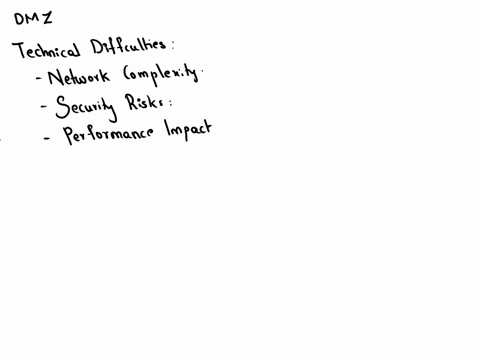 DMZ
Technical Difficulties:
- Network Complexity.
- Security Risks:
- Performance Impact